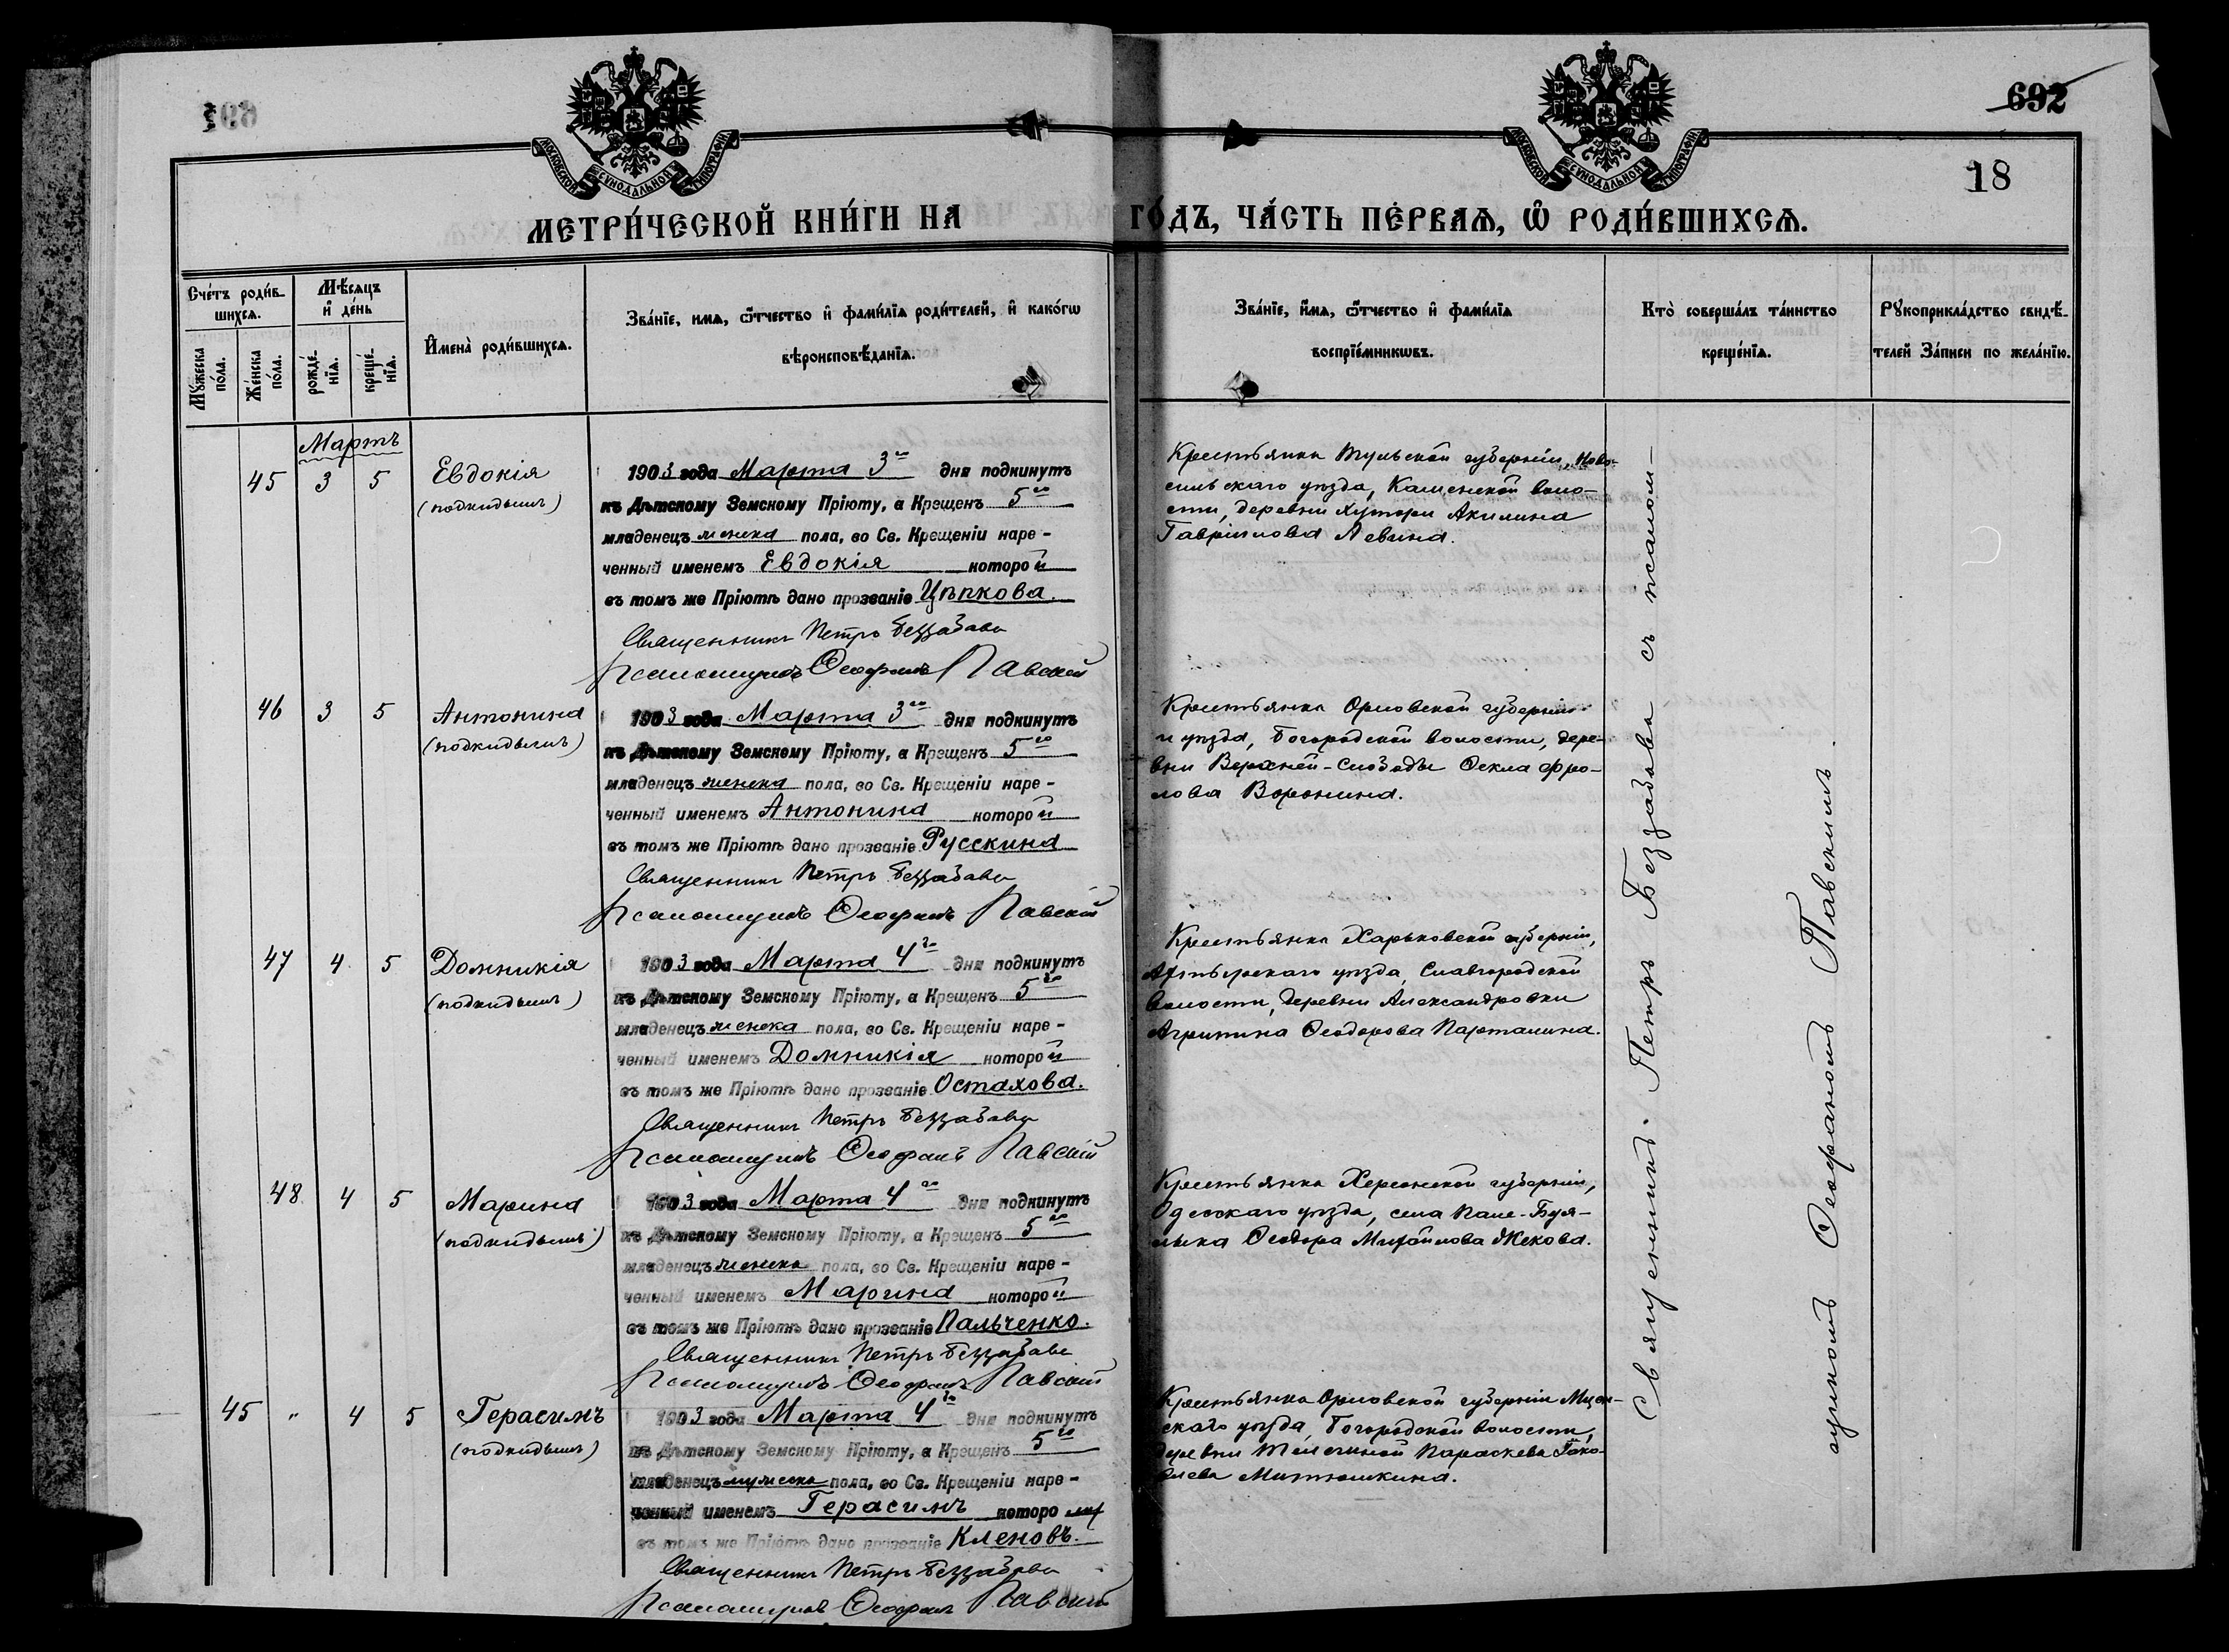 692
18
МОСКОВСКОЙ СѴНОДАЛЬНОЙ ТИПОГРАФІИ
МОСКОВСКОЙ СѴНОДАЛЬНОЙ ТИПОГРАФІИ
МЕТРИ́ЧЕСКОЙ КНИ́ГИ НА ГО́ДЪ, ЧА́СТЬ ПЕ́РВАѦ, Ѡ҆ РОДИ́ВШИХСѦ.
Сче́тъ роди́в-
шихсѧ.
Мужеска пола.
Же́нска по́ла.
Мѣ́сѧцъ
и҆ де́нь
рожде́-
нїѧ.
креще́-
нїѧ.
И҆мена̀ роди́вшихсѧ.
Зва́нїе, имѧ, ѻ҆́тчество и҆ фами́лїѧ роди́телей, и҆ како́гѡ
вѣроисповѣ́данїѧ.
Зва́нїе, и҆́мѧ, ѻ҆́тчество и҆ фами́лїѧ
воспрїе́мникѡвъ.
Кто̀ соверша́лъ та́инство
креще́нїѧ.
Рꙋкоприкла́дство свидѣ́-
телей за́писи по жела́нїю.
Мартъ
45 3 5 Евдокія
(подкидышъ)
1903 года Марта 3го дня подкинутъ
къ Дѣтскому Земскому Пріюту, а Крещенъ 5го
младенецъ женска пола, во Св. Крещеніи наре-
ченный именемъ Евдокія которой
въ томъ же Пріютѣ дано прозваніе Цѣпкова.
Священникъ Петръ Беззабава
Псаломщикъ Ѳеофанъ Павскій
Крестьянка Тульской губерніи, Ново-
сильскаго уѣзда, Каменской воло-
сти, деревни Хутори Акилина
Гавріилова Левина.
46 3 5 Антонина
(подкидышъ)
1903 года Марта 3го дня подкинутъ
къ Дѣтскому Земскому Пріюту, а Крещенъ 5го
младенецъ женска пола, во Св. Крещеніи наре-
ченный именемъ Антонина которой
въ томъ же Пріютѣ дано прозваніе Русскина
Священникъ Петръ Беззабава
Псаломщикъ Ѳеофанъ Павскій
Крестьянка Орловской губерніи
и уѣзда, Богородской волости, дере-
вни Верхней-Слободы Ѳекла Фро-
лова Воронина.
47 4 5 Домникія
(подкидышъ)
1903 года Марта 4го дня подкинутъ
къ Дѣтскому Земскому Пріюту, а Крещенъ 5го
младенецъ женска пола, во Св. Крещеніи наре-
ченный именемъ Домникія которой
въ томъ же Пріютѣ дано прозваніе Остахова.
Священникъ Петръ Беззабава
Псаломщикъ Ѳеофанъ Павскій
Крестьянка Харьковской губерніи,
Ахтырскаго уѣзда, Славгородской
волости, деревни Александровки
Агрипина Ѳеодорова Парталина.
48 4 5 Марина
(подкидышъ)
1903 года Марта 4го дня подкинутъ
къ Дѣтскому Земскому Пріюту, а Крещенъ 5го
младенецъ женска пола, во Св. Крещеніи наре-
ченный именемъ Марина которой
въ томъ же Пріютѣ дано прозваніе Пальченко.
Священникъ Петръ Беззабава
Псаломщикъ Ѳеофанъ Павскій
Крестьянка Херсонской губерніи,
Одесскаго уѣзда, села Буя-
лыка Ѳеодора Михайлова Жекова.
45 " 4 5 Герасимъ
(подкидышъ)
1903 года Марта 4го дня подкинутъ
къ Дѣтскому Земскому Пріюту, а Крещенъ 5го
младенецъ мужеска пола, во Св. Крещеніи наре-
ченный именемъ Герасимъ которому
въ томъ же Пріютѣ дано прозваніе Кленовъ.
Священникъ Петръ Беззабава
Псаломщикъ Ѳеофанъ Павскій
Крестьянка Орловской губерніи Мцен-
скаго уѣзда, Богородской волости,
деревни Телегиной Параскева Яко-
влева Митюшкина.
Священникъ Петръ Беззабава съ псалом-
щикомъ Ѳеофаномъ Павскимъ.